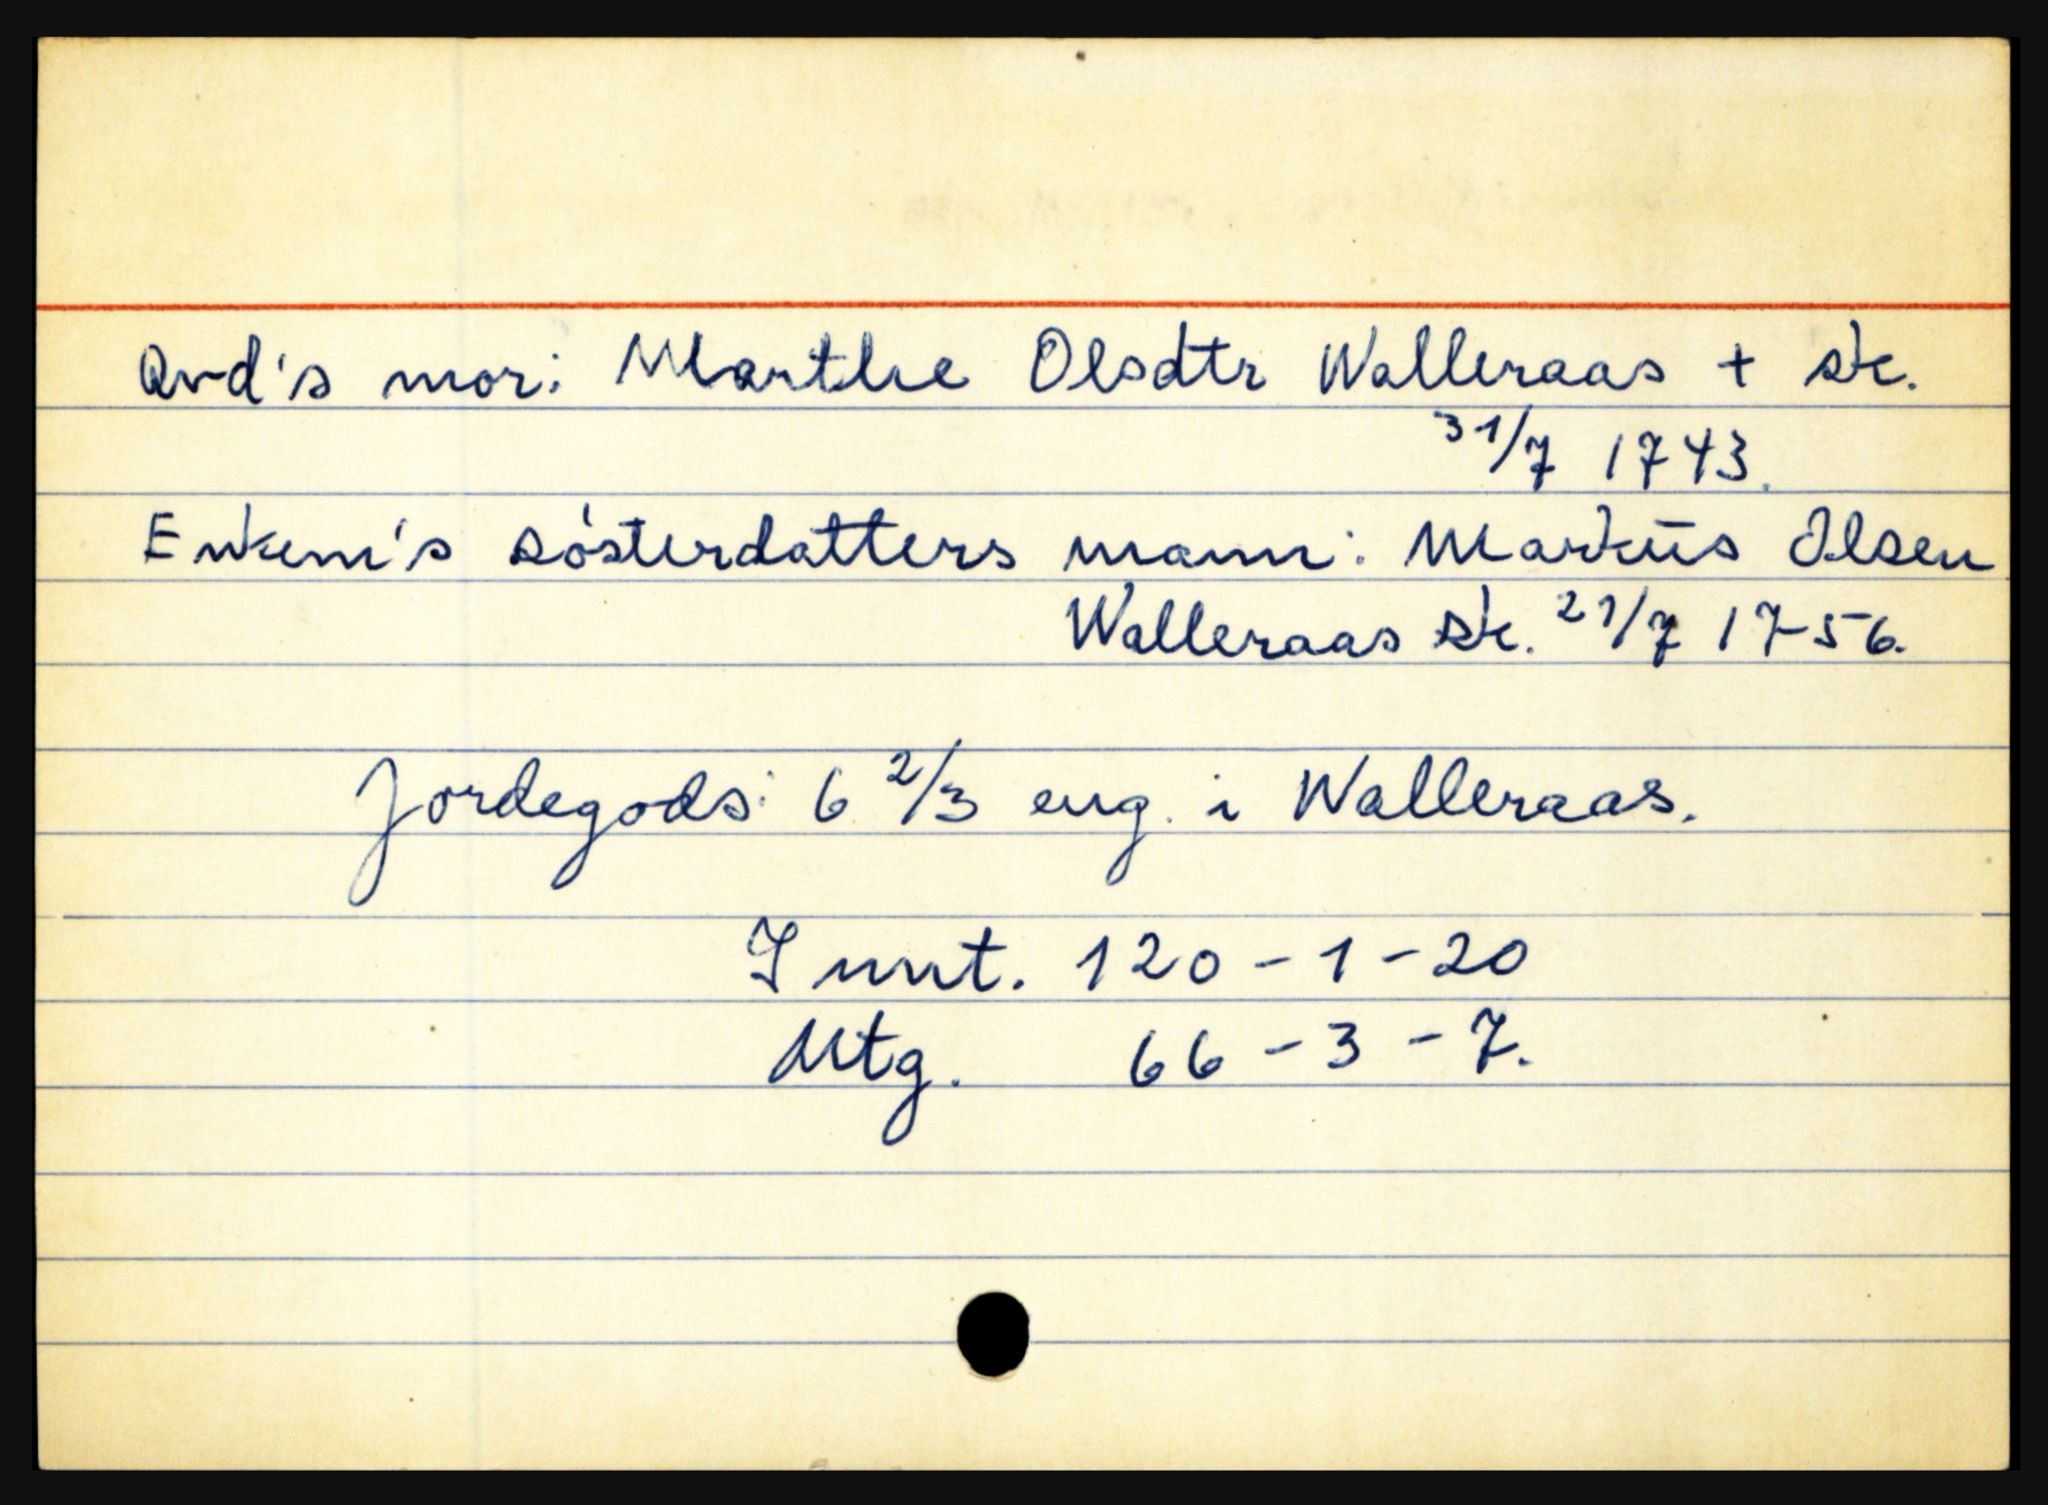 Avd's mor: Marthe Olsdtr Walleraas + sk.
31/7 1743.
Enkem's sösterdatters mann: Markus Olsen
Walleraas sk. 21/7 1756.
Jordegods: 6 2/3 eng. i Walleraas.
Innt. 120-1-20
Utg. 66-3-7.